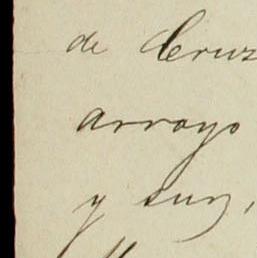 de Cruz
arroyo
y sur,